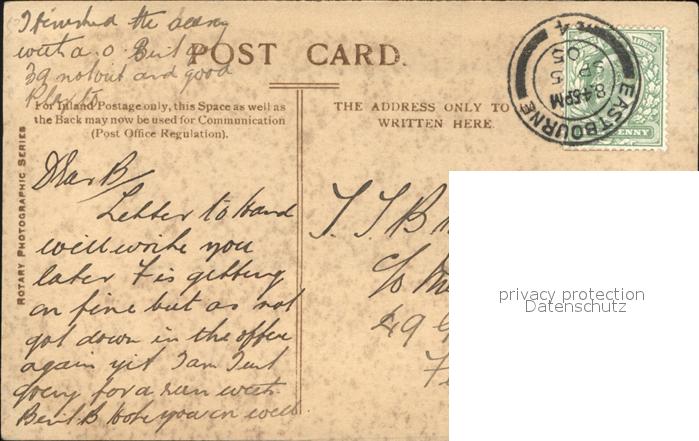 I finished the
with a
39 not out and good
POST CARD.
For Inland Postage only, this Space as well as
the Back may now be used for Communication
(Post Office Regulation).
THE ADDRESS ONLY TO
WRITTEN HERE.
EASTBOURNE
8.45PM
SP 5
05
4
PENNY
ROTARY PHOTOGRAPHIC SERIES
Dear B
Letter to hand
will write you
later F is getting
on fine but as not
got down in the office
again yit I am Just
going for a run with
Bert. B hope you are well
T. J. B
c/o
29
privacy protection
Datenschutz